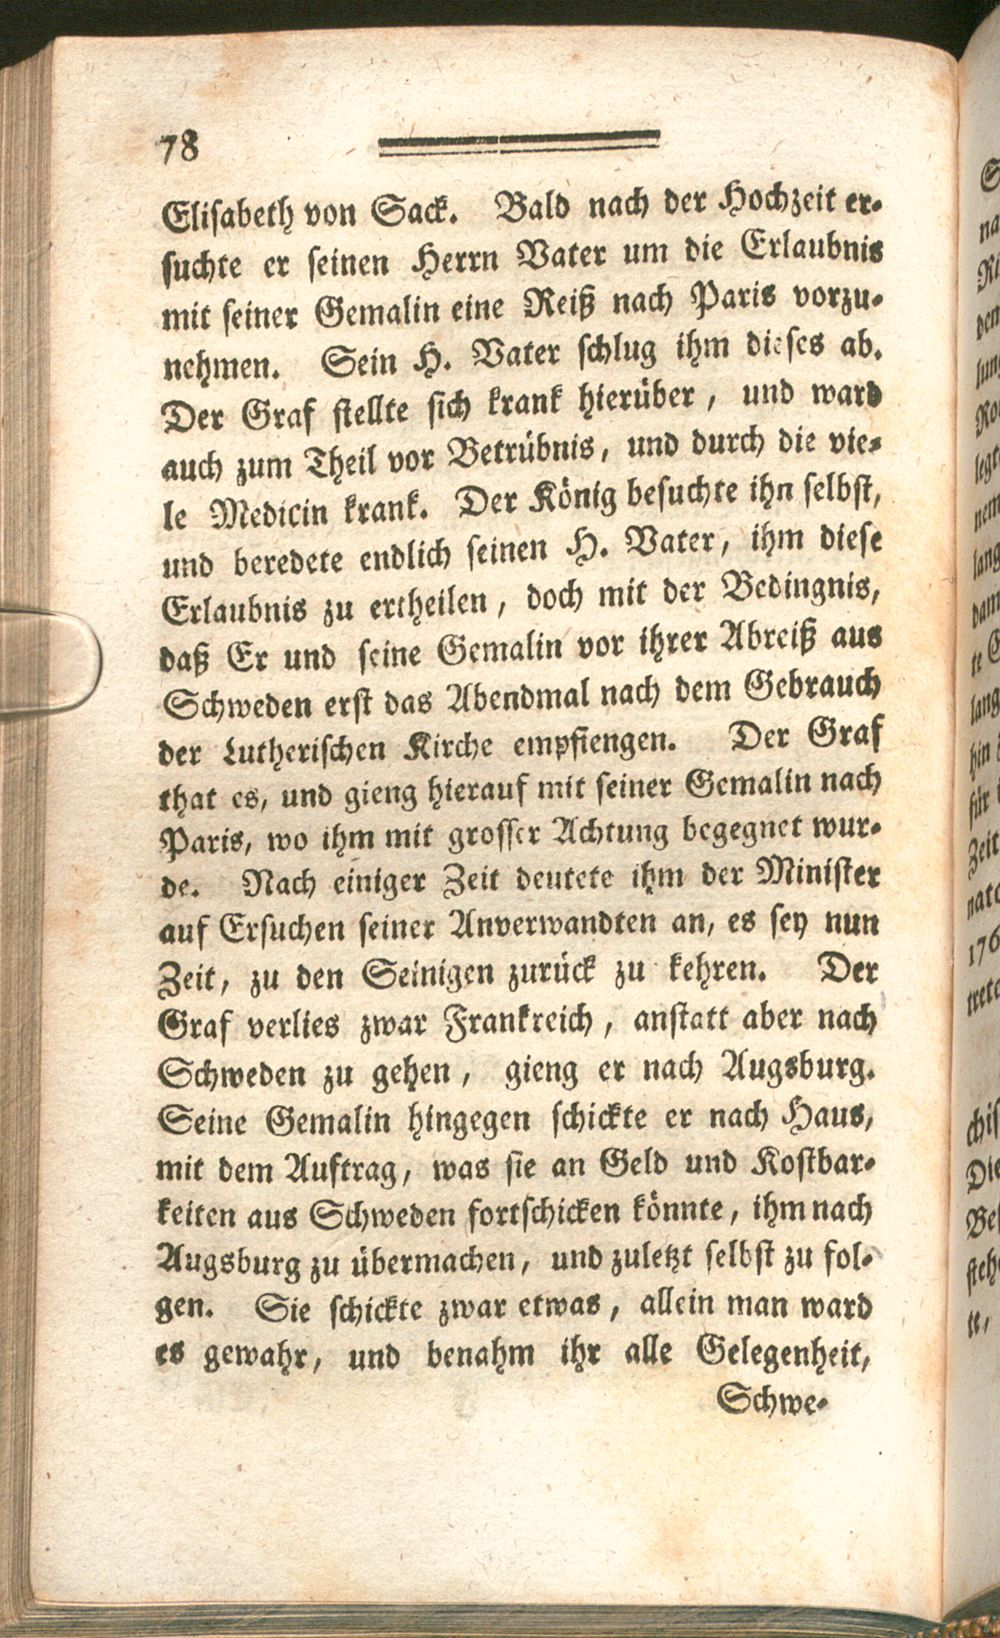 78
Eliſabeth von Sack. Bald nach der Hochzeit er-
ſuchte er ſeinen Herrn Vater um die Erlaubnis
mit ſeiner Gemalin eine Reiß nach Paris vorzu-
nehmen. Sein H. Vater ſchlug ihm dieſes ab.
Der Graf ſtellte ſich krank hierüber, und ward
auch zum Theil vor Betrübnis, und durch die vie-
le Medicin krank. Der König beſuchte ihn ſelbſt,
und beredete endlich ſeinen H. Vater, ihm dieſe
Erlaubnis zu ertheilen, doch mit der Bedingnis,
daß Er und ſeine Gemalin vor ihrer Abreiß aus
Schweden erſt das Abendmal nach dem Gebrauch
der Lutheriſchen Kirche empfiengen. Der Graf
that es, und gieng hierauf mit ſeiner Gemalin nach
Paris, wo ihm mit groſſer Achtung begegnet wur-
de. Nach einiger Zeit deutete ihm der Miniſter
auf Erſuchen ſeiner Anverwandten an, es ſey nun
Zeit, zu den Seinigen zurück zu kehren. Der
Graf verlies zwar Frankreich, anſtatt aber nach
Schweden zu gehen, gieng er nach Augsburg.
Seine Gemalin hingegen ſchickte er nach Haus,
mit dem Auftrag, was ſie an Geld und Koſtbar-
keiten aus Schweden fortſchicken könnte, ihm nach
Augsburg zu übermachen, und zuletzt ſelbſt zu fol-
gen. Sie ſchickte zwar etwas, allein man ward
es gewahr, und benahm ihr alle Gelegenheit,
Schwe-